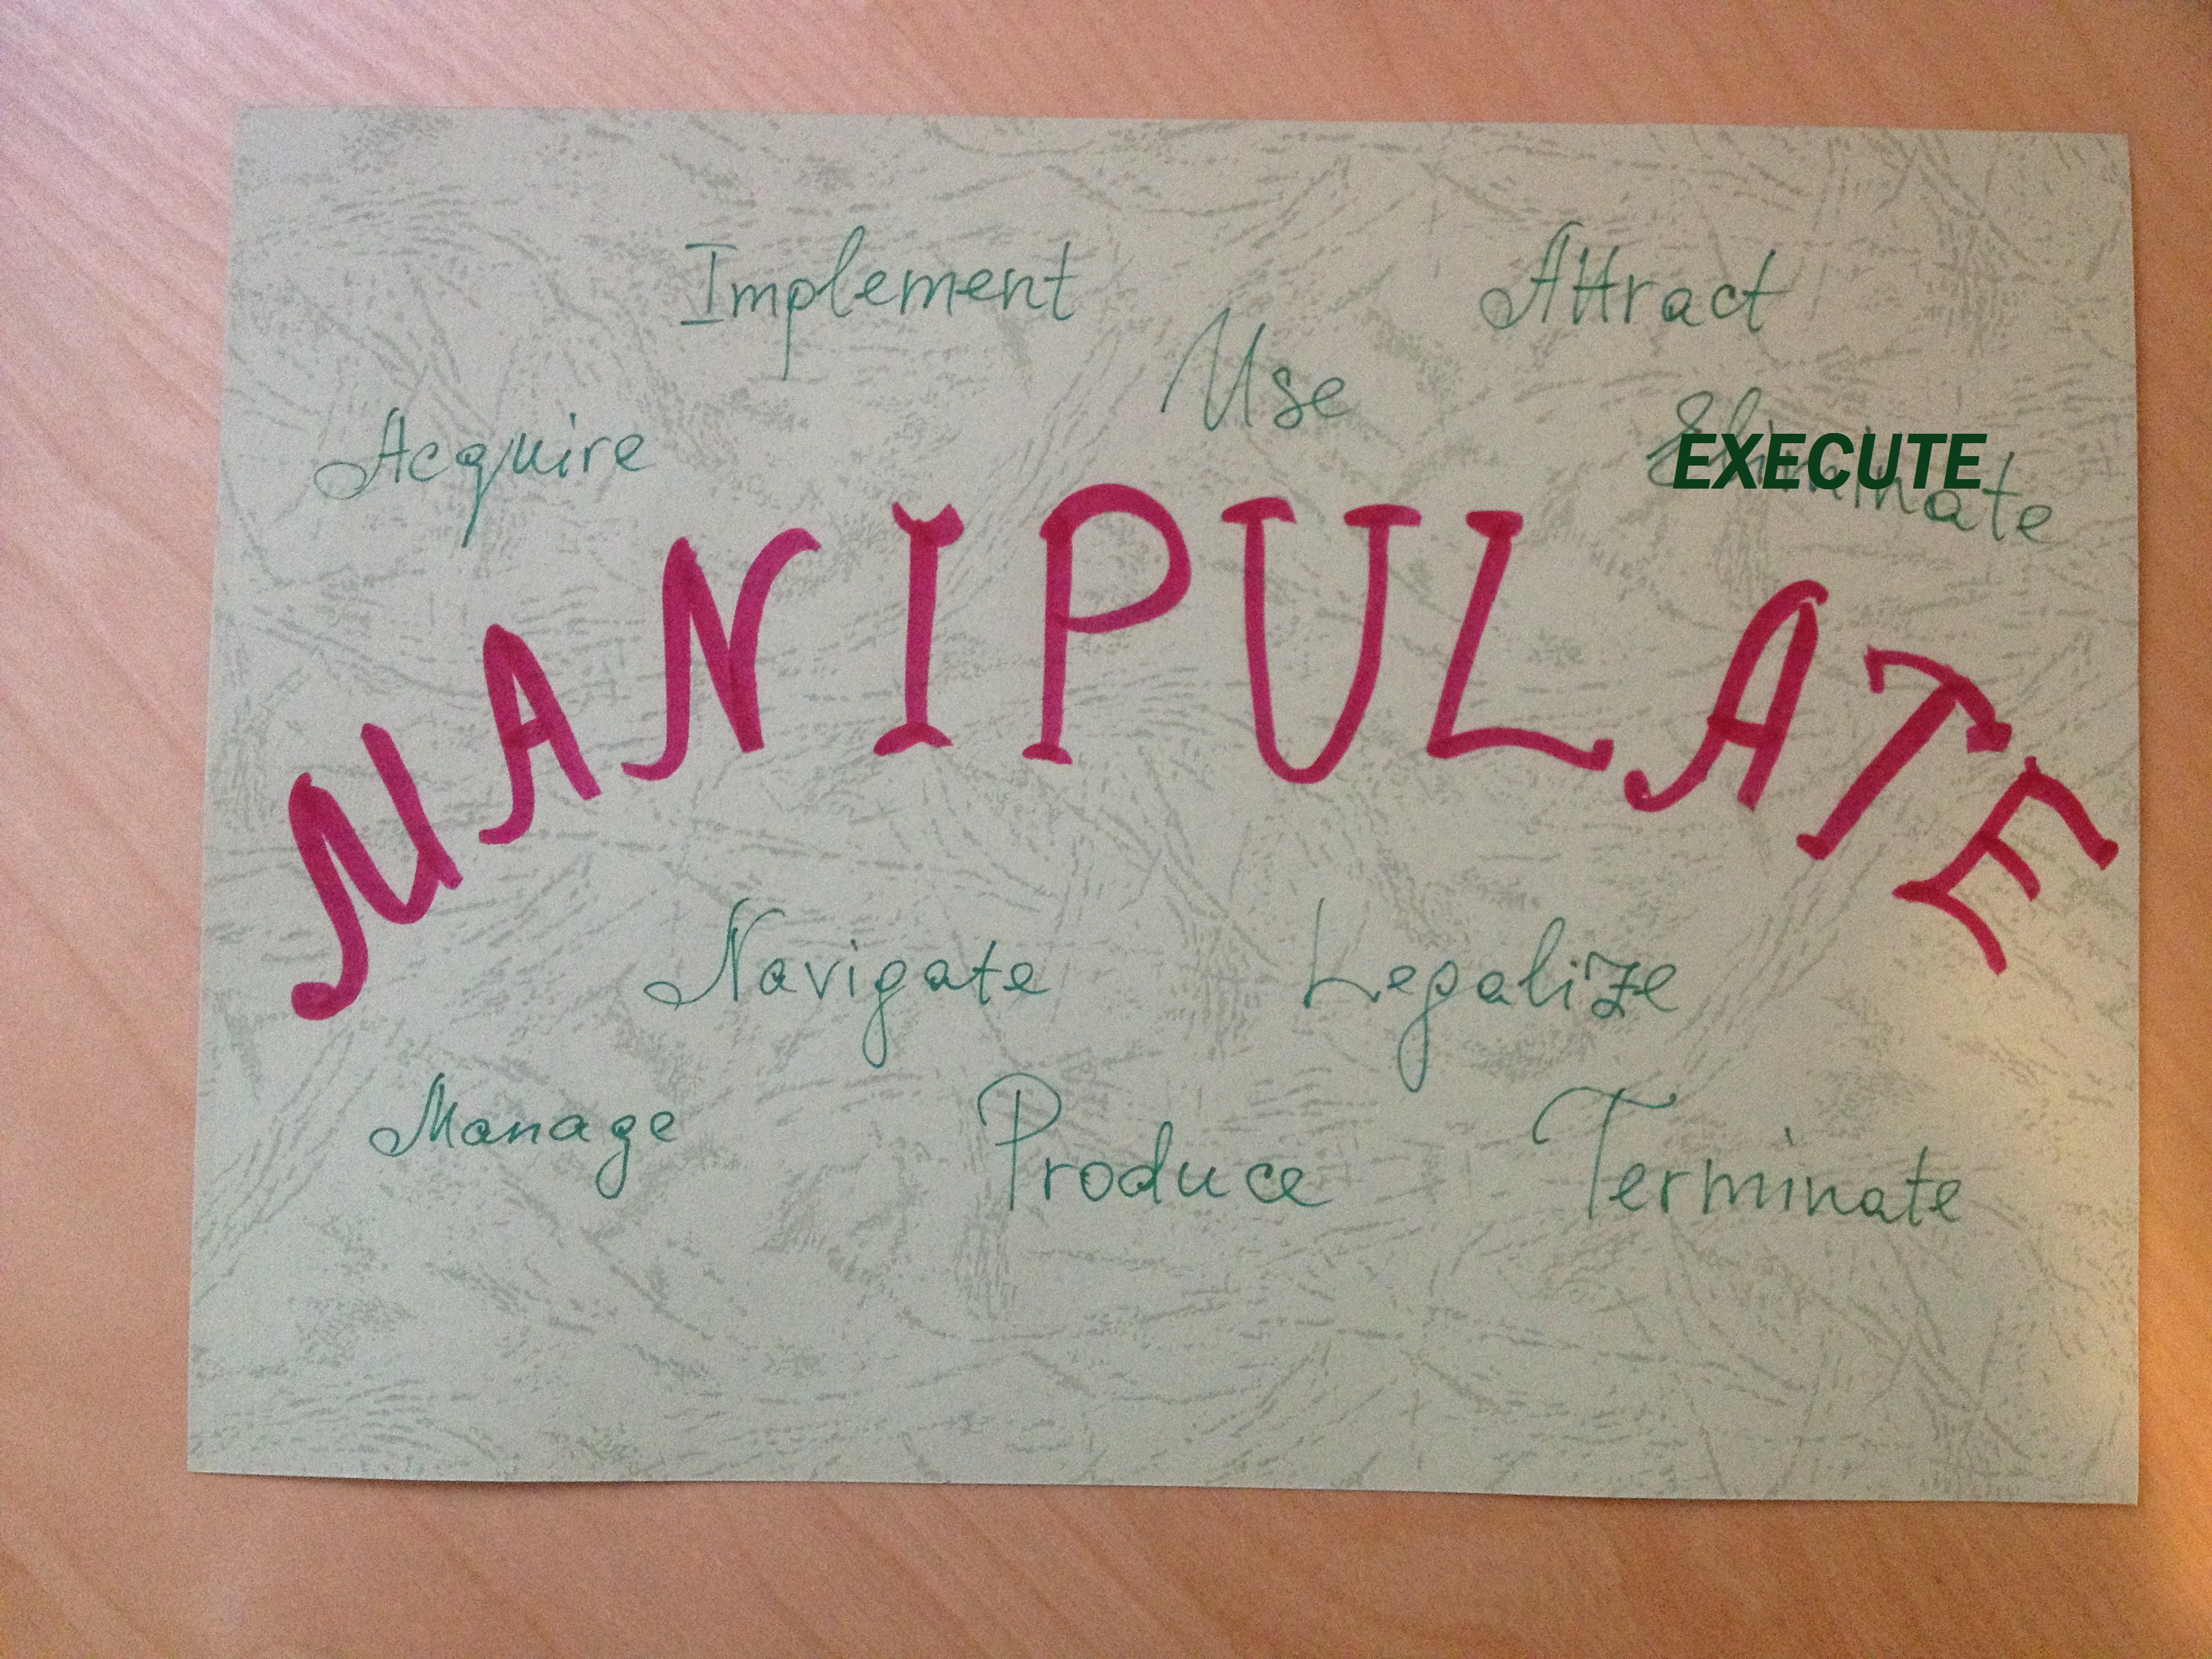 Implement
Attract
Use
Acquire
Eliminate
EXECUTE
MANIPULATE
Navigate
Legalize
Manage
Produce
Terminate